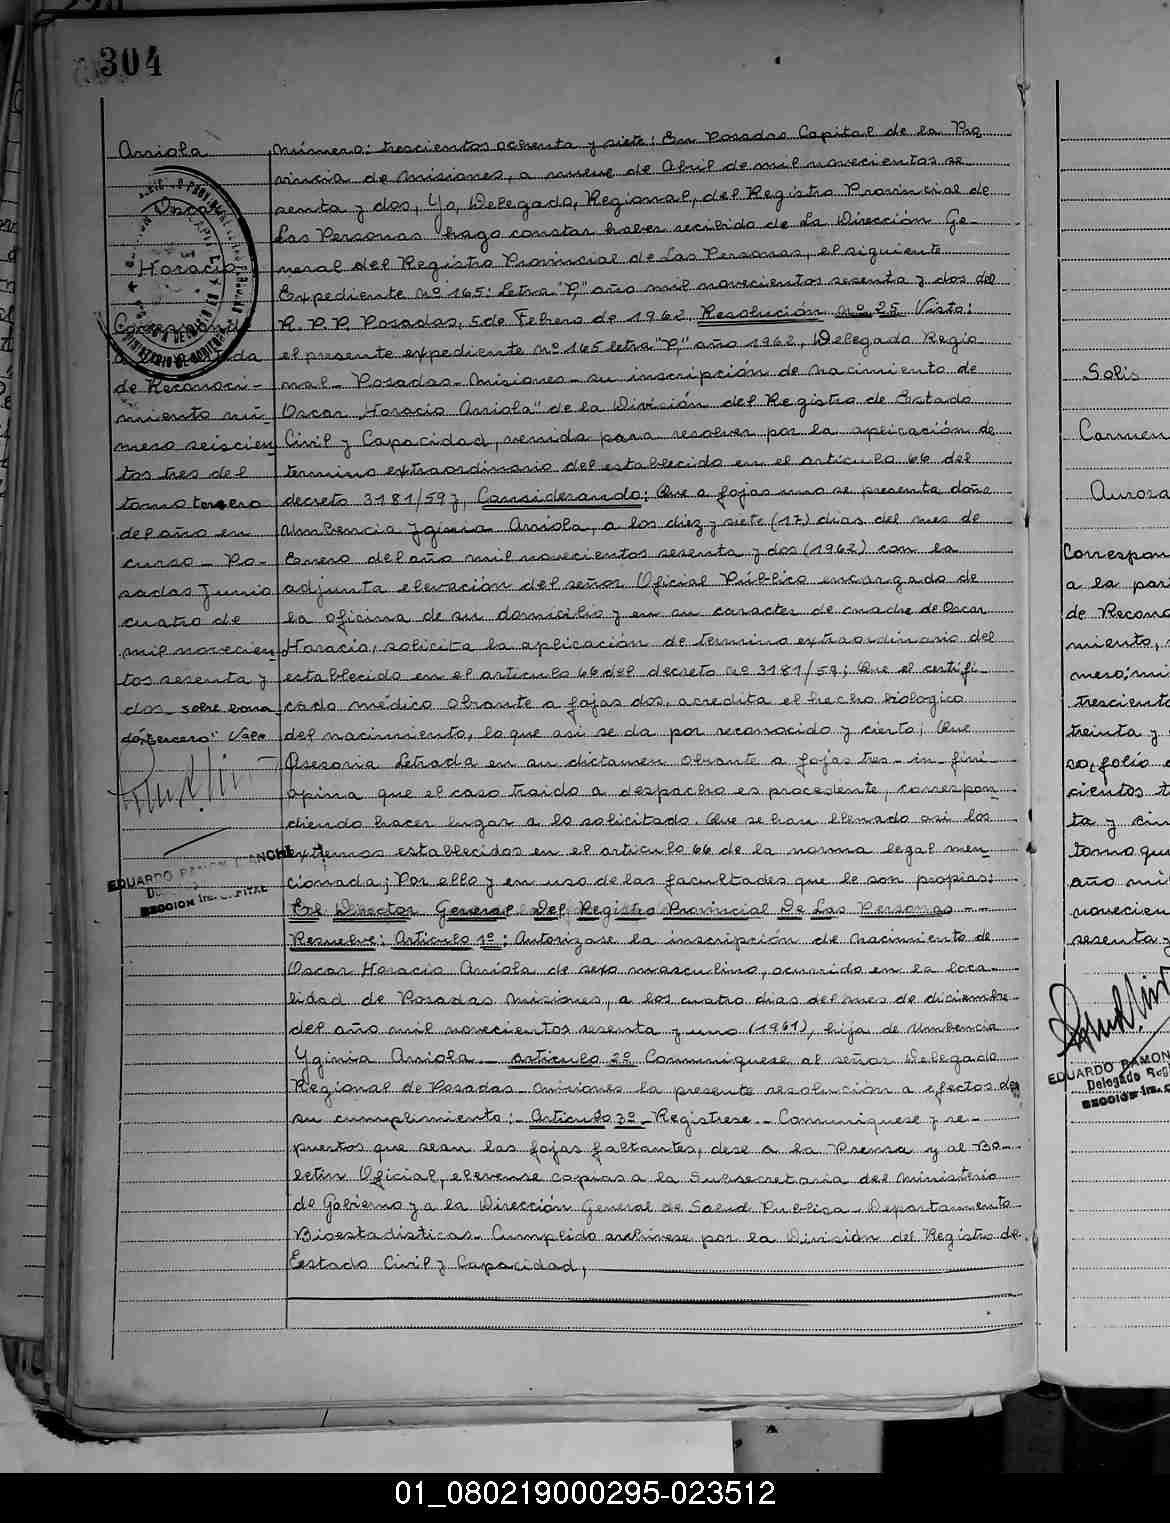 304
Arriola
Oscar
Horacio
de Reconoci-
miento nú-
mero seiscien-
tos tres del
tomo tercero
del año en
curso - Po-
sadas Junio
cuatro de
mil novecien-
tos sesenta y
dos - sobre borra
do: "tercero": Vale
EDUARDO RAMON
Número: trescientos ochenta y siete: En Posadas Capital de la Pro
vincia de Misiones, a nueve de Abril de mil novecientos se
senta y dos, Yo, Delegado, Regional, del Registro Provincial de
Las Personas hago constar haber recibido de La Dirección Ge-
neral del Registro Provincial de Las Personas, el siguiente
Expediente nº 165: Letra "P," año mil novecientos sesenta y dos del
R. P. P. Posadas, 5 de Febrero de 1962, Resolución nº 25 Visto:
el presente expediente nº 165 letra "P," año 1962, Delegado Regio
nal - Posadas - Misiones - su inscripción de nacimiento de
Oscar Horacio Arriola" de la División del Registro de Estado
Civil y Capacidad, venida para resolver por la aplicación de
termino extraordinario del establecido en el artículo 66 del
decreto 3181/59 y, Considerando: Que a fojas uno se presenta doña
Umbencia Yginia Arriola, a los diez y siete (17) dias del mes de
Enero del año mil novecientos sesenta y dos (1962) con la
adjunta elevación del señor Oficial Público encargado de
la oficina de su domicilio y en su caracter de madre de Oscar
Horacio, solicita la aplicación de termino extraordinario del
establecido en el artículo 66 del decreto nº 3181/59; Que el certifi-
cado médico obrante a fojas dos, acredita el hecho biologico
del nacimiento, lo que asi se da por reconocido y cierto; Que
Asesoria Letrada en su dictamen obrante a fojas tres - in-fini
opina que el caso traido a despacho es procedente, correspon-
diendo hacer lugar a lo solicitado. Que se han llenado asi los
extremos establecidos en el artículo 66 de la norma legal men-
cionada; Por ello y en uso de las facultades que le son propias:
El Director General Del Registro Provincial De Las Personas --
Resuelve: Artículo 1º: Autorízase la inscripción de nacimiento de
Oscar Horacio Arriola de sexo masculino, ocurrido en la loca-
lidad de Posadas Misiones, a los cuatro dias del mes de diciembre
del año mil novecientos sesenta y uno (1961), hijo de Umbencia
Yginia Arriola - artículo 2º Comuníquese al señor Delegado
Regional de Posadas - Misiones la presente resolución a efectos de
su cumplimiento: - Artículo 3º - Regístrese - Comuníquese y re-
puestos que sean las fojas faltantes, dese a la Prensa y al Bo-
letín Oficial, elevense copias a la Subsecretaria del Ministerio
de Gobierno y a la Dirección General de Salud Publica - Departamento
Bioestadisticas. Cumplido archívese por la División del Registro de
Estado Civil y Capacidad,
Solis
Carmen
Aurora
Correspon
a la par
de Recono
miento,
mero: mi
trescient
treinta y
so, folio
cientos t
ta y cin
tomo qu
año mil
novecien
sesenta y
EDUARDO RAMON
Delegado Reg
01_080219000295-023512